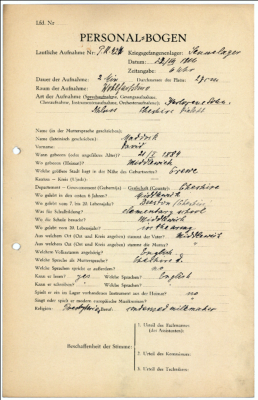 Lfd. Nr
PERSONAL-BOGEN
Lautliche Aufnahme Nr: P.K. Kriegsgefangenenlager: Sennelager
Datum:
Zeitangabe: 4 Uhr
Dauer der Aufnahme: 2 Min Durchmesser der Platte: 27 cm
Raum der Aufnahme:
Art der Aufnahme (Sprechaufnahme, Gesangsaufnahme,
Choraufnahme, Instrumentenaufnahme, Orchesteraufnahme):
Cheshire
Name (in der Muttersprache geschrieben):
Name (lateinisch geschrieben): Maddock
Vorname: David
Wann geboren (oder ungefähres Alter)? 1884
Wo geboren (Heimat)? Middlewich
Welche größere Stadt liegt in der Nähe des Geburtsortes? Crewe
Kanton – Kreis (Ujedz):
Departement – Gouvernement (Gubernija) – Grafschaft (County): Cheshire
Wo gelebt in den ersten 6 Jahren? Middlewich
Wo gelebt vom 7. bis 20. Lebensjahr? (Cheshire)
Was für Schulbildung? elementary school
Wo die Schule besucht? Middlewich
Wo gelebt vom 20. Lebensjahr?
Aus welchem Ort (Ort und Kreis angeben) stammt der Vater? Middlewich
Aus welchem Ort (Ort und Kreis angeben) stammt die Mutter?
Welchem Volksstamm angehörig? English
Welche Sprache als Muttersprache? Cheshire d.
Welche Sprachen spricht er außerdem? no
Kann er lesen? yes Welche Sprachen? English
Kann er schreiben? Welche Sprachen?
Spielt er ein im Lager vorhandenes Instrument aus der Heimat? no
Singt oder spielt er moderne europäische Musikweisen?
Religion: Beruf: condensed milkmaker
Beschaffenheit der Stimme:
1. Urteil des Fachmannes
(des Assistenten):
2. Urteil des Kommissars:
3. Urteil des Technikers: